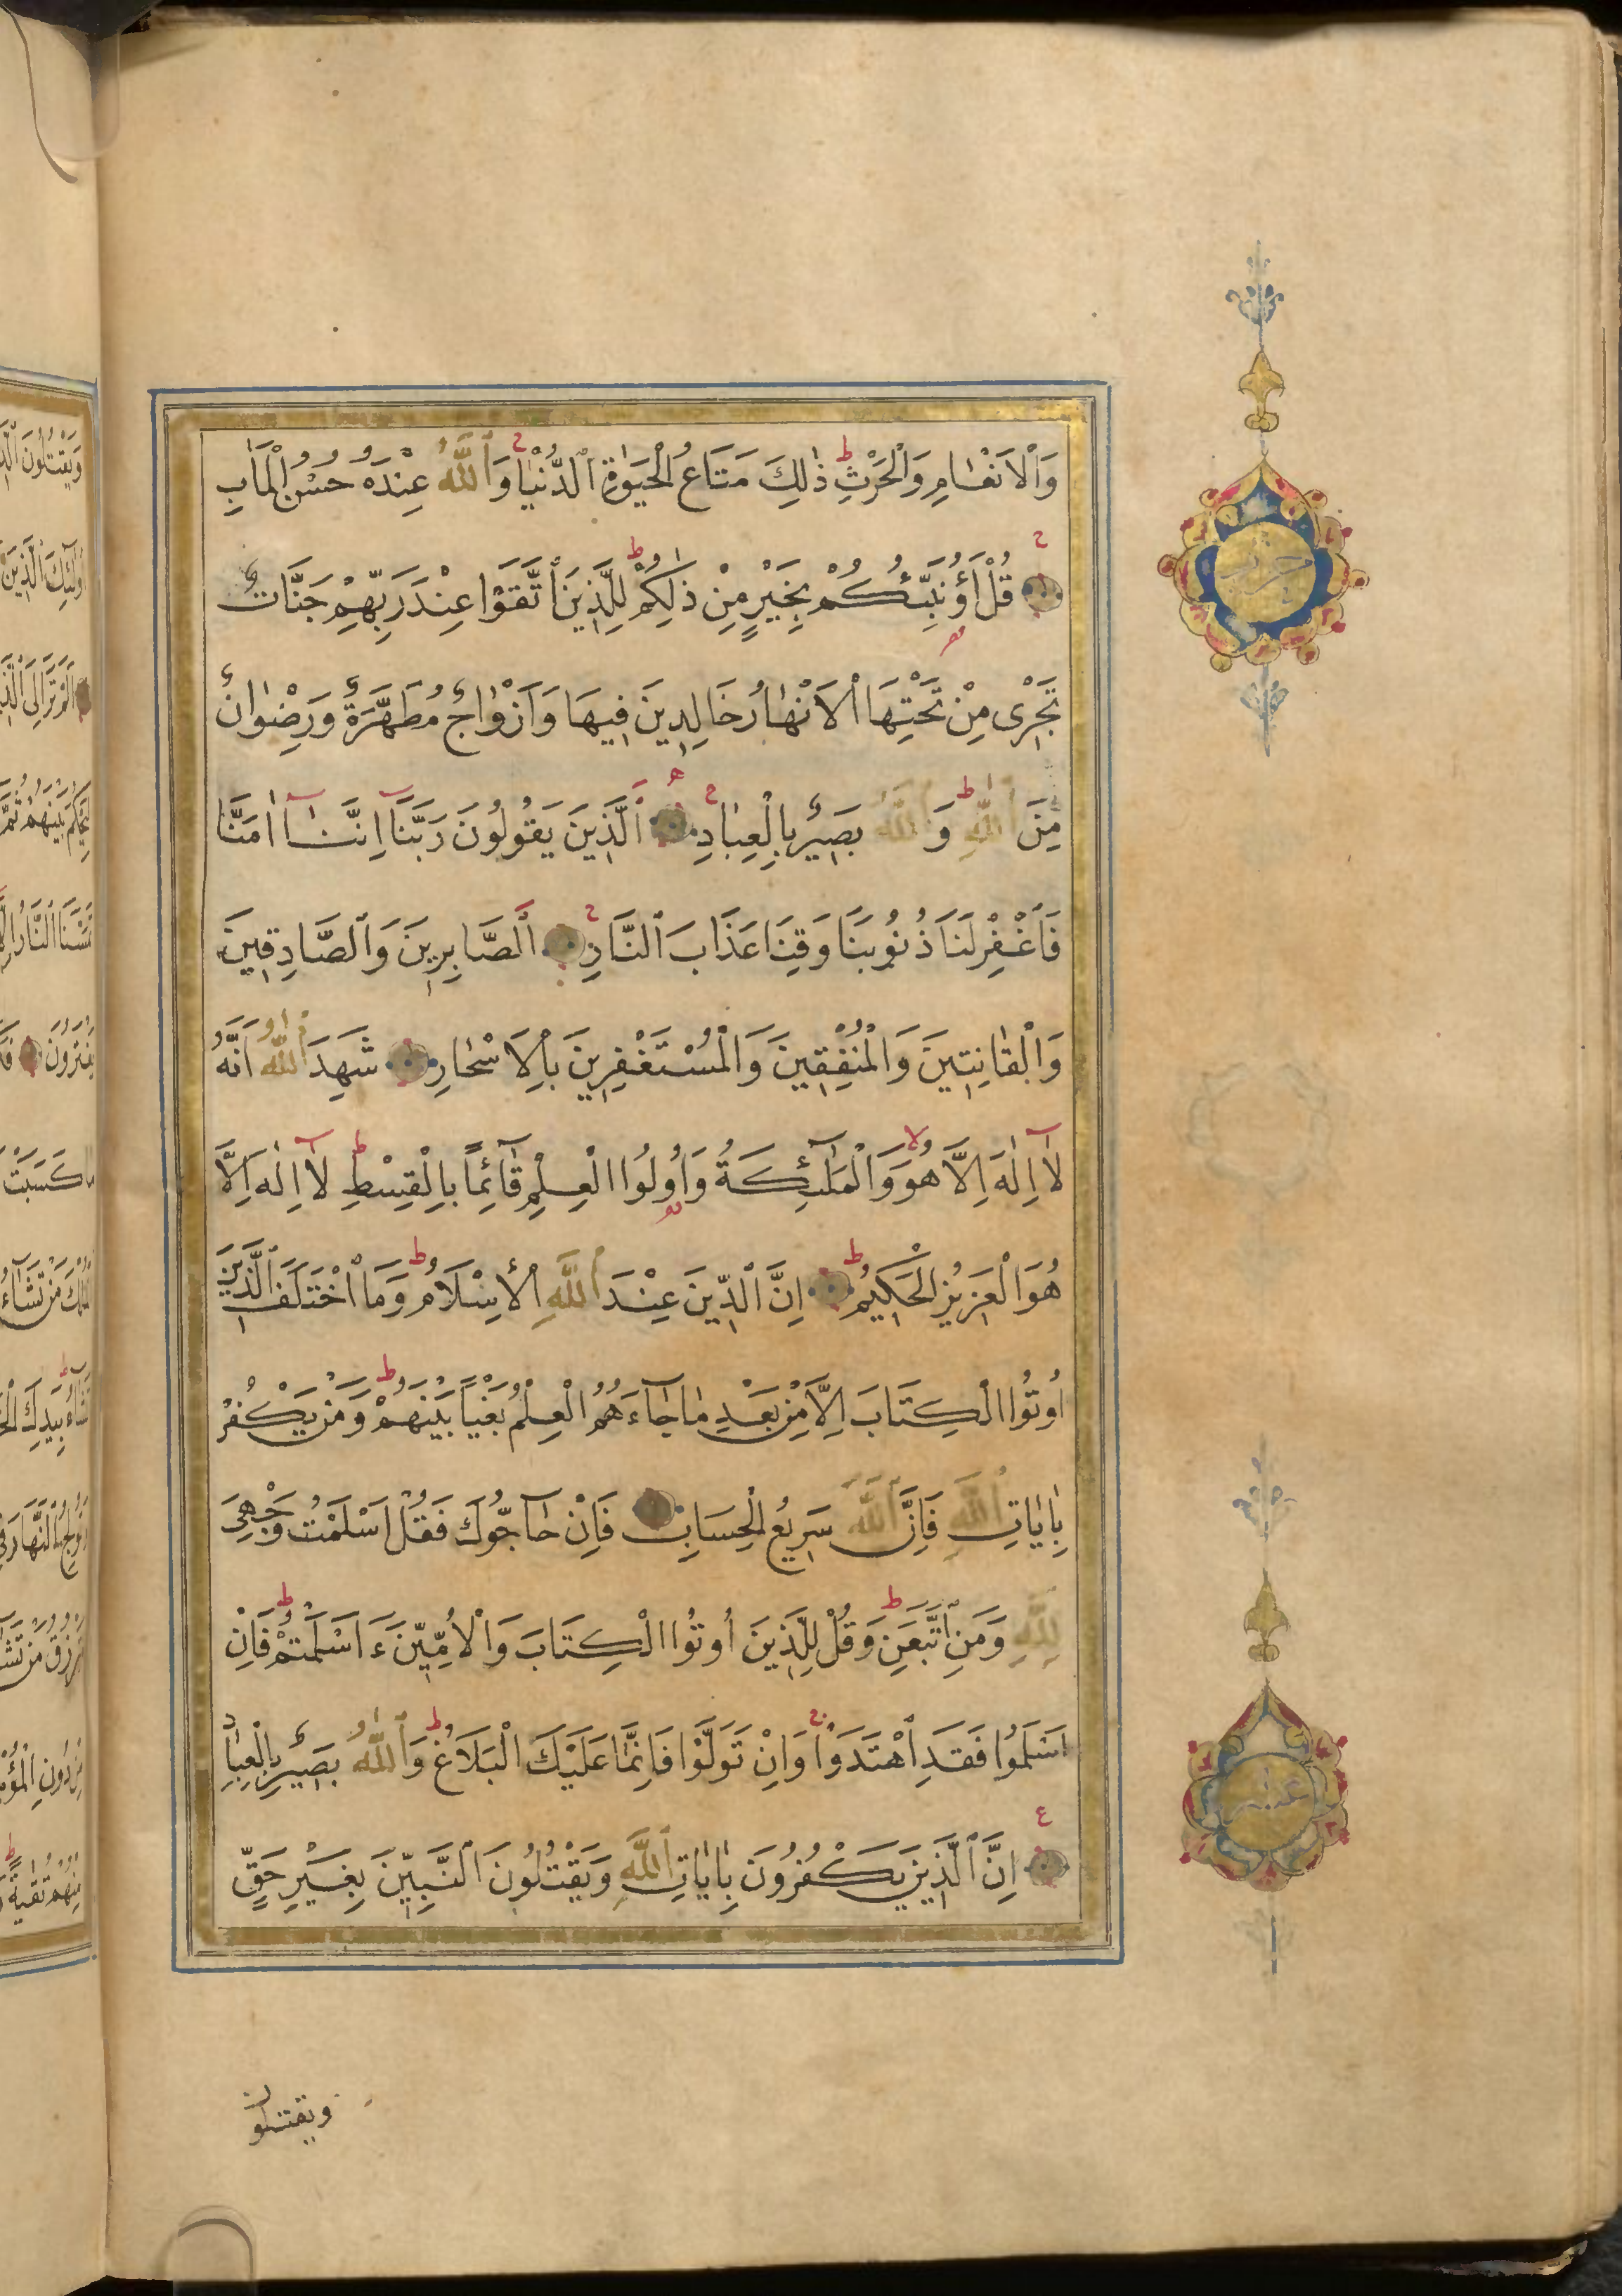 وَالْاَنْعَامِ وَالْحَرْثِ ط ذٰلِكَ مَتَاعُ الْحَيٰوةِ الدُّنْيَا ح وَاللّٰهُ عِنْدَهُ حُسْنُ الْمَاٰبِ
ح قُلْ اَؤُنَبِّئُكُمْ بِخَيْرٍ مِنْ ذٰلِكُمْ ط لِلَّذِينَ اتَّقَوْا عِنْدَ رَبِّهِمْ جَنَّاتٌ
تَجْرِى مِنْ تَحْتِهَا الْاَنْهَارُ خَالِدِينَ فِيهَا وَاَزْوَاجٌ مُطَهَّرَةٌ وَرِضْوَانٌ
مِنَ اللّٰهِ ط وَاللّٰهُ بَصِيرٌ بِالْعِبَادِ ح اَلَّذِينَ يَقُولُونَ رَبَّنَٓا اِنَّنَٓا اٰمَنَّا
فَاغْفِرْ لَنَا ذُنُوبَنَا وَقِنَا عَذَابَ النَّارِ ح اَلصَّابِرِينَ وَالصَّادِقِينَ
وَالْقَانِتِينَ وَالْمُنْفِقِينَ وَالْمُسْتَغْفِرِينَ بِالْاَسْحَارِ شَهِدَ اللّٰهُ اَنَّهُ
لَٓا اِلٰهَ اِلَّا هُوَ لا وَالْمَلٰٓئِكَةُ وَاُولُوا الْعِلْمِ قَٓائِمًا بِالْقِسْطِ ط لَٓا اِلٰهَ اِلَّا
هُوَ الْعَزِيزُ الْحَكِيمُ ط اِنَّ الدِّينَ عِنْدَ اللّٰهِ الْاِسْلَامُ ط وَمَا اخْتَلَفَ الَّذِينَ
اُوتُوا الْكِتَابَ اِلَّا مِنْ بَعْدِ مَا جَٓاءَهُمُ الْعِلْمُ بَغْيًا بَيْنَهُمْ ط وَمَنْ يَكْفُرْ
بِاٰيَاتِ اللّٰهِ فَاِنَّ اللّٰهَ سَرِيعُ الْحِسَابِ فَاِنْ حَٓاجُّوكَ فَقُلْ اَسْلَمْتُ وَجْهِىَ
لِلّٰهِ وَمَنِ اتَّبَعَنِ ط وَقُلْ لِلَّذِينَ اُوتُوا الْكِتَابَ وَالْاُمِّيِّنَ ءَاَسْلَمْتُمْ ط فَاِنْ
اَسْلَمُوا فَقَدِ اهْتَدَوْا ج وَاِنْ تَوَلَّوْا فَاِنَّمَا عَلَيْكَ الْبَلَاغُ ط وَاللّٰهُ بَصِيرٌ بِالْعِبَادِ
ع اِنَّ الَّذِينَ يَكْفُرُونَ بِاٰيَاتِ اللّٰهِ وَيَقْتُلُونَ النَّبِيِّنَ بِغَيْرِ حَقٍّ
ويقتلون